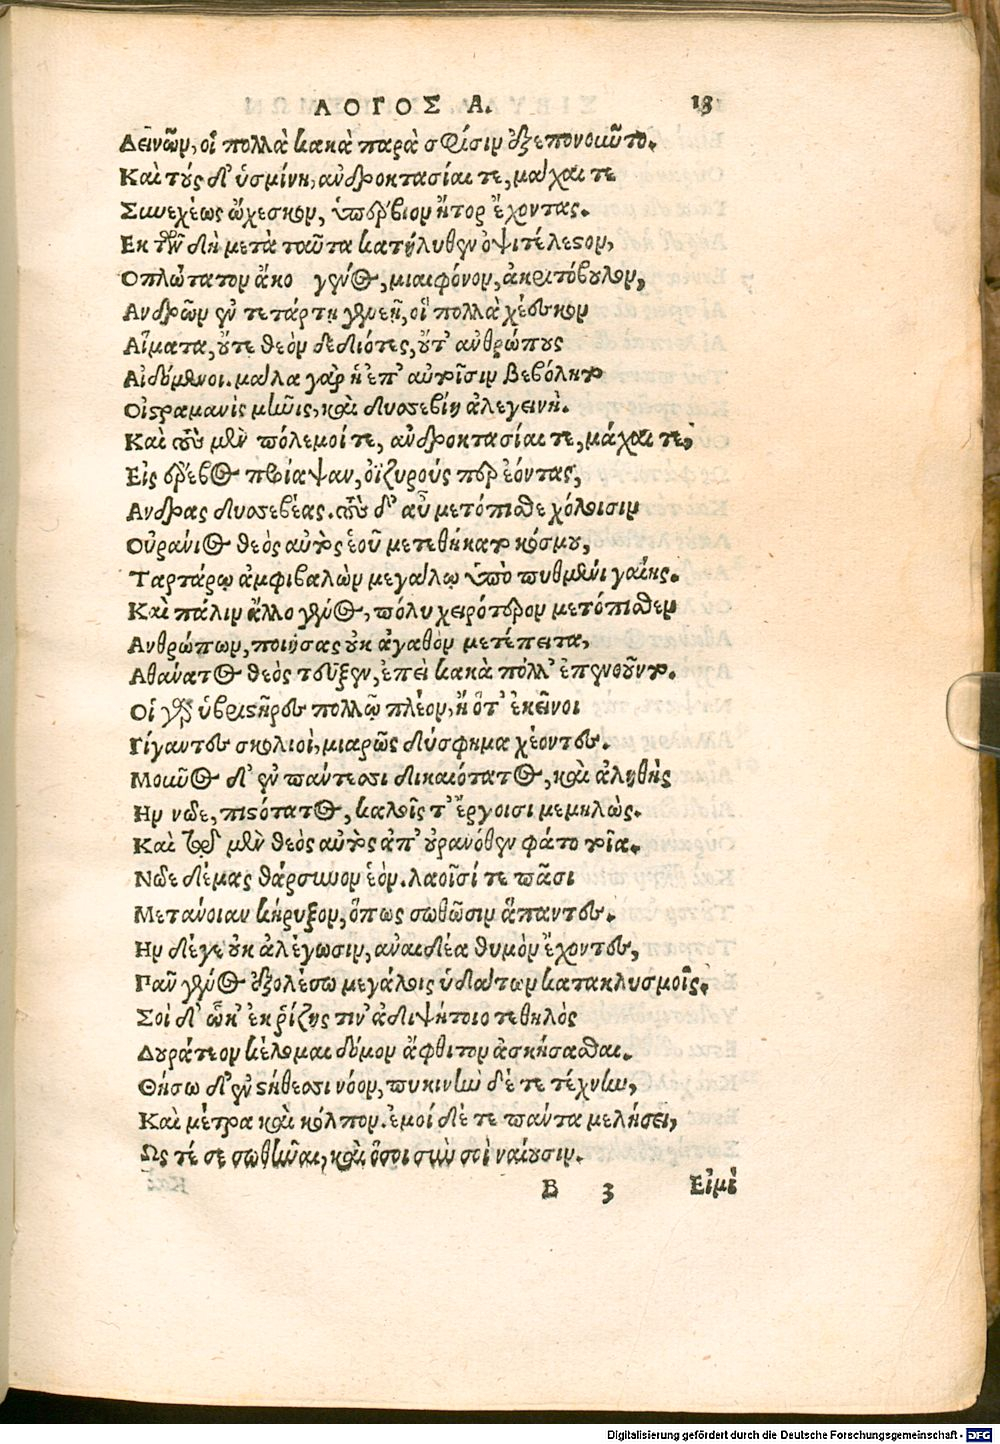 ΛΟΓΟΣ Α. 13
Δεινῶν, οἳ πολλὰ κακὰ παρὰ σφίσιν ἐξεπονοιῦτο.
Καὶ τύς δ' ὑσμίνη, ἀνδροκτασίαι τε, μάχαι τε
Συνεχέως ᾤχεσκον, ὑπέρβιον ἦτορ ἔχοντας.
Εκ τῶν δὴ μετὰ ταῦτα κατήλυθεν ὀψιτέλεστον,
Οπλώτατον ἄκο γένος, μιαιφόνον, ἀκριτόβουλον,
Ανδρῶν ἐν τετάρτῃ γενεῇ, οἳ πολλὰ χέεσκον
Αἵματα, οὔτε θεὸν δεδιότες, οὔτ' ἀνθρώπους
Αἰδούμενοι. μάλα γὰρ ἡ ἐπ' αὐτοῖσιν βεβόλητο
Οἰστρομανὶς μῆνις, καὶ δυσσεβίη ἀλεγεινή.
Καὶ τοὺς μὲν πόλεμοί τε, ἀνδροκτασίαι τε, μάχαι τε,
Εἰς ἔρεβος προίαψαν, ὀϊζυρούς περ ἐόντας,
Ανδρας δυσσεβέας. τοὺς δ' αὖ μετόπισθε χόλοισιν
Οὐράνιος θεὸς αὐτὸς ἑοῦ μετεθήκατο κόσμου,
Ταρτάρῳ ἀμφιβαλὼν μεγάλῳ ὑπὸ πυθμένι γαίης.
Καὶ πάλιν ἄλλο γένος, πόλυ χειρότερον μετόπισθεν
Ανθρώπων, ποιήσας οὐκ ἀγαθὸν μετέπειτα,
Αθάνατος θεὸς τεῦξεν, ἐπεὶ κακὰ πόλλ' ἐπενοοῦντο.
Οἱ γὰρ ὑβριστῆρες πολλῷ πλέον, ἢ ὅτ' ἐκεῖνοι
Γίγαντες σκολιοὶ, μιαρῶς δύσφημα χέοντες.
Μοῦνος δ' ἐν πάντεσσι δικαιότατος, καὶ ἀληθὴς
Ην νῶε, πιστότατος, καλοῖς τ' ἔργοισι μεμηλώς.
Καὶ τῷ μὲν θεὸς αὐτὸς ἀπ' οὐρανόθεν φάτο τοῖα.
Νῶε δέμας θάρσυνον ἑὸν. λαοῖσί τε πᾶσι
Μετάνοιαν κήρυξον, ὅπως σωθῶσιν ἅπαντες.
Ην δέ γε οὐκ ἀλέγωσιν, ἀναιδέα θυμὸν ἔχοντες,
Πᾶν γένος ἐξολέσω μεγάλοις ὑδάτων κατακλυσμοῖς.
Σοὶ δ' ὦκ' ἐκ ῥίζης τιν' ἀδιψήτοιο τεθηλὸς
Δουράτεον κέλομαι δόμον ἄφθιτον ἀσκήσασθαι.
Θήσω δ' ἐν στήθεσσι νόον, πυκινὴν δέ τε τέχνην,
Καὶ μέτρα καὶ κόλπον. ἐμοὶ δέ τε πάντα μελήσει,
Ως τέ σε σωθῆναι, καὶ ὅσοι σὺν σοὶ ναίουσιν.
B 3 Εἰμὶ